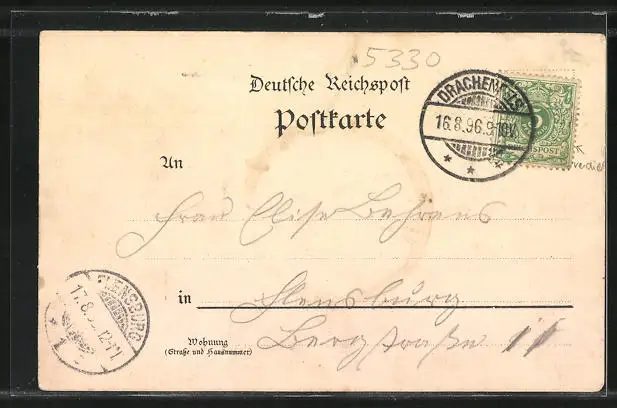 5330
Deutsche Reichspost
Postkarte
DRACHENFELS
16.8.96.9-10V.
SPOST
An
Frau Elise Behrens
in Flensburg
FLENSBURG
17.8. 12-1
* 1
Wohnung
(Straße und Hausnummer)
Bergstraße 11